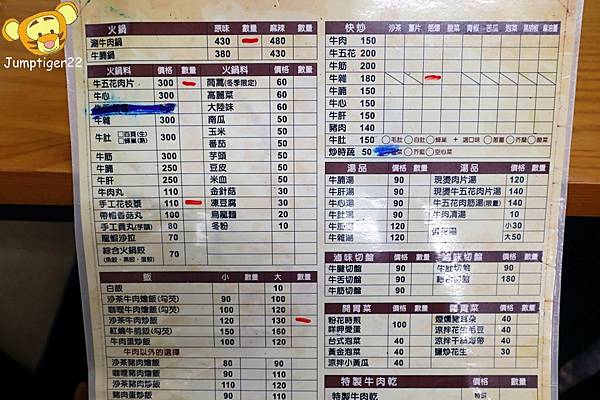 Jumptiger22
火鍋 原味 數量 麻辣 數量
涮牛肉鍋 430 480
牛腩鍋 380 430
火鍋料 價格 數量 火鍋料 價格 數量
牛五花肉片 300 茼萵(冬季限定) 60
牛心 300 高麗菜 60
大陸妹 60
牛雜 300 南瓜 50
牛肚 □百頁(生) □蜂巢(熟) 300 玉米 50
番茄 50
牛筋 300 芋頭 50
牛腩 250 豆皮 50
牛肝 250 米血 50
牛肉丸 110 金針菇 30
手工花枝漿 110 凍豆腐 30
帶帽香菇丸 90 烏龍麵 20
手工貢丸(芋頭) 80 冬粉 10
龍蝦沙拉 70
綜合火鍋餃 (魚餃、燕餃、蛋餃) 70
飯 小 數量 大 數量
白飯 10
沙茶牛肉燴飯(勾芡) 90 100
咖哩牛肉燴飯(勾芡) 90 100
沙茶牛肉炒飯 120 130
紅燒牛腩飯(勾芡) 150 160
牛肉蛋炒飯 90 100
牛肉以外的選擇
沙茶豬肉燴飯 80 90
咖哩豬肉燴飯 90 100
沙茶豬肉炒飯 110 120
豬肉蛋炒飯
快炒 價格 沙茶 薑片 蔥爆 酸菜 青椒 苦瓜 泡菜 黑胡椒 麻油薑
牛肉 150
牛五花 200
牛筋 200
牛雜 180
牛腩 150
牛心 150
牛肝 150
豬肉 140
牛肚 150 ○毛肚 ○白肚 ○蜂巢 + 選口味 ○蔥薑 ○芥蘭 ○酸菜
炒時蔬 50 ○芥藍 ○空心菜
湯品 價格 數量 湯品 價格 數量
牛腩湯 90 現燙肉片湯 120
牛肝湯 90 現燙牛五花肉片湯 140
牛心湯 90 牛五花肉筋湯(限量) 140
牛肚湯 90 牛肉清湯 10
牛筋湯 90 蛋花湯 小30
牛雜湯 90 大50
滷味切盤 價格 數量 滷味切盤 價格 數量
牛腱切盤 90 牛肚切盤 90
牛舌切盤 90 綜合切盤 180
牛筋切盤 90
開胃菜 價格 數量 開胃菜 價格 數量
粉花時煎 100 煙燻豬耳朵 40
咩呷愛蛋 涼拌花生毛豆 40
台式泡菜 40 涼拌干絲海帶 40
黃金泡菜 40 蠔炒花生 40
涼拌小黃瓜 40
特製牛肉乾 價格 數量 特製牛肉乾